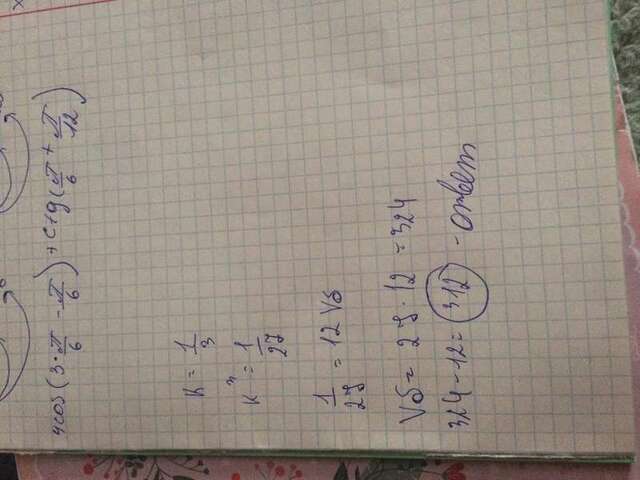 4cos(3·π/6 - π/6) + ctg(π/6 + π/12)
k = 1/3
k³ = 1/27
1/27 = 12 Vб
Vб = 27·12 = 324
324 - 12 = 312 - ответ